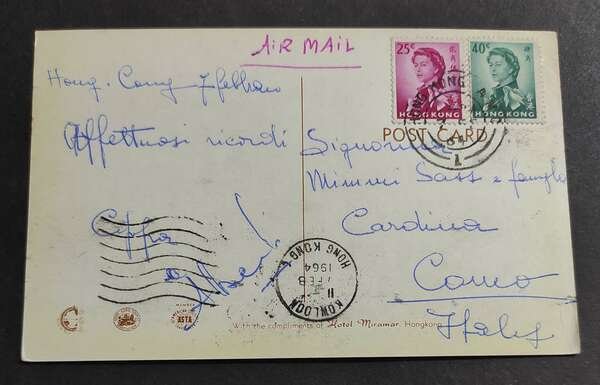 AIR MAIL
25c
HONG KONG
40c
HONG KONG
Hong-Cong 7 febbraio
POST CARD
Affettuosi ricordi
Signorina
Mimmi Sass e famiglia
Cardina
Como
Italy
KOWLOON
11
FEB
1964
HONG KONG
ASTA
With the compliments of Hotel Miramar, Hongkong